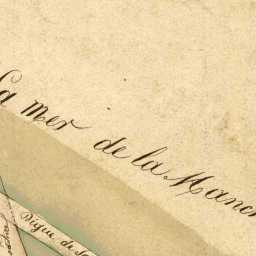 La mer de la Manc
Digue de